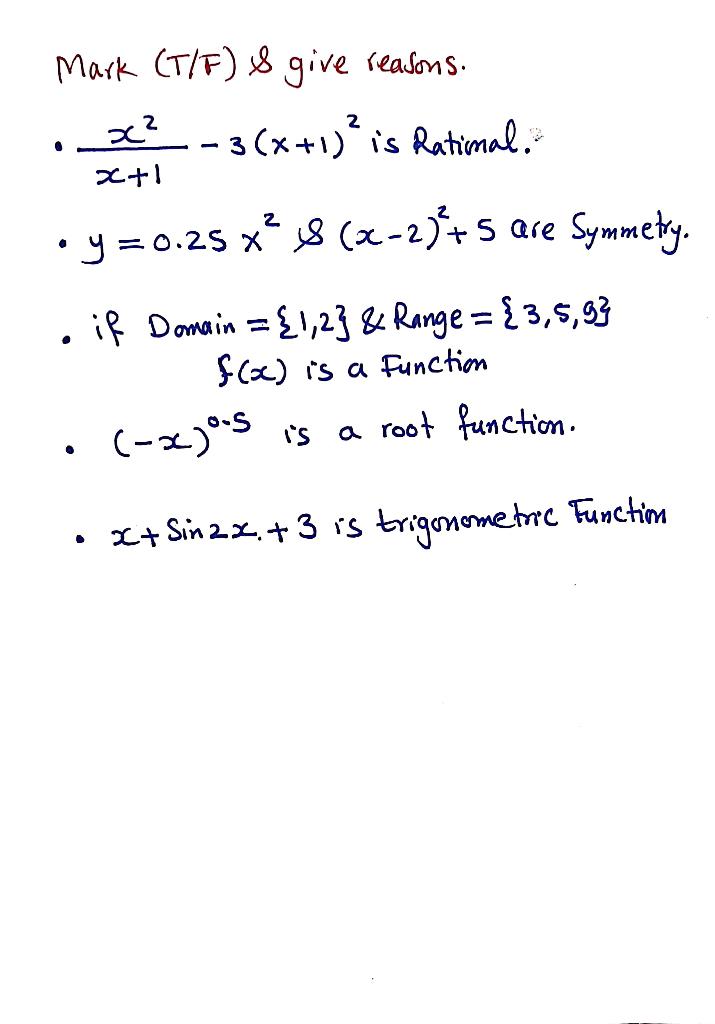 Mark (T/F) & give reasons.
• x²/(x+1) - 3(x+1)² is Rational.
• y = 0.25 x² & (x-2)² + 5 are Symmetry.
• if Domain = {1,2} & Range = {3,5,9}
f(x) is a Function
• (-x)^0.5 is a root function.
• x + Sin2x. + 3 is trigonometric Function